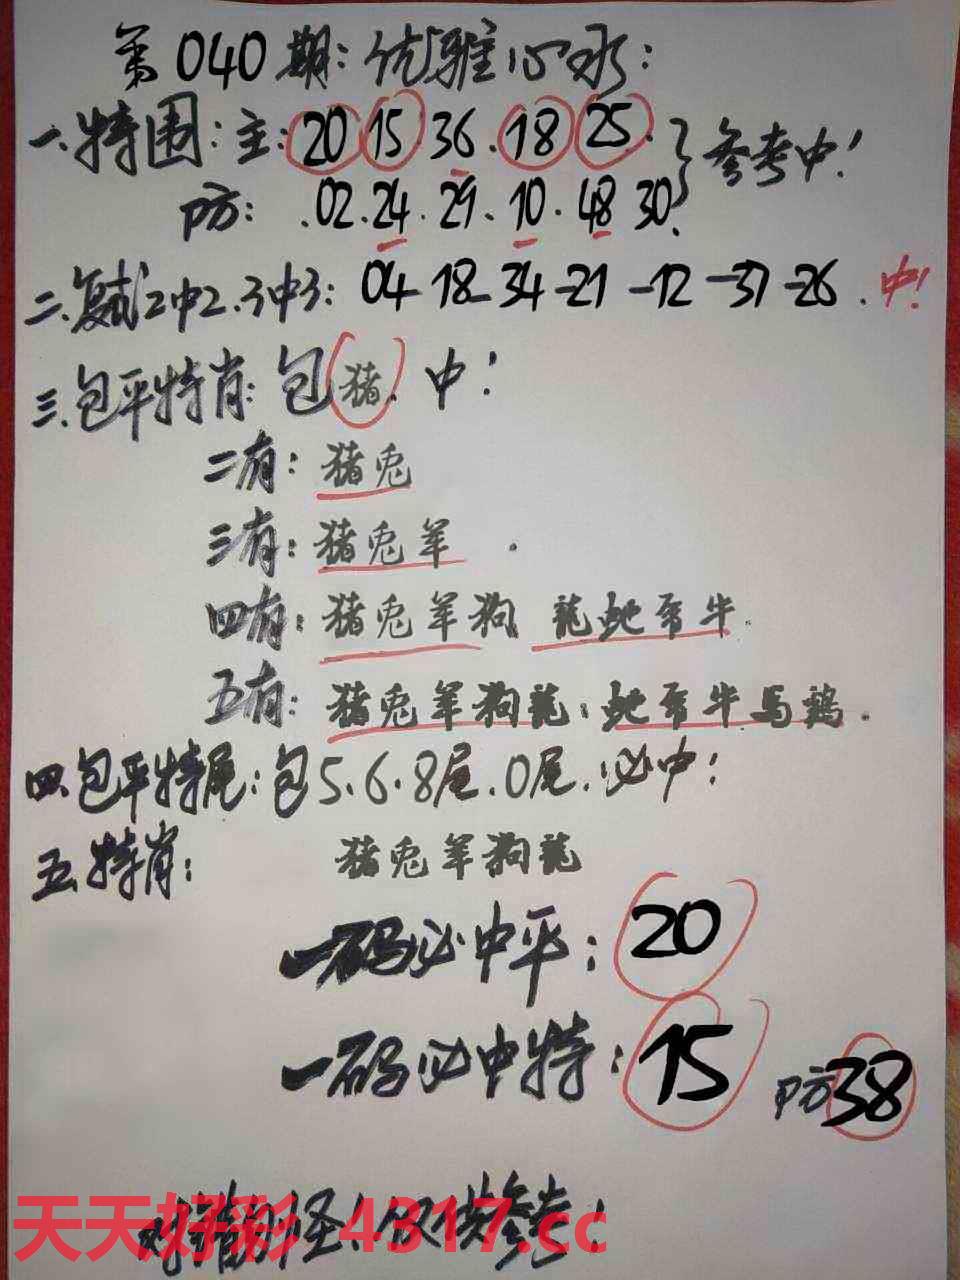 第040期:优雅心水:
一.特围:主:20 15.36.18 25.}参考中!
防:.02.24.29.10.48 30.
二.复试2中2.3中3:04-18-34-21-12-37-26.中!
三.包平特肖:包猪.中!
二有:猪兎
三有:猪兎羊.
四有:猪兎羊狗 龍蛇马牛.
五有:猪兎羊狗龍:蛇马牛馬鷄.
四.包平特尾:包5.6.8尾.0尾.必中!
五.特肖: 猪兎羊狗龍
一码必中平:20
一码必中特:15 防38
对错勿怪!仅供参考!
天天好彩 4317.cc